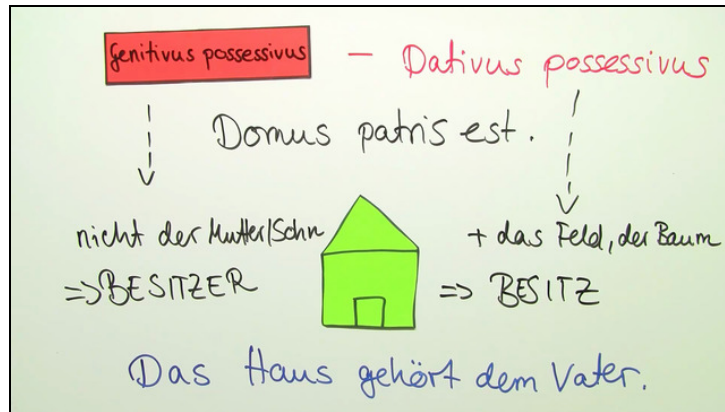 Genitivus possessivus – Dativus possessivus
Domus patris est.
nicht der Mutter/Sohn + das Feld, der Baum
=> BESITZER => BESITZ
Das Haus gehört dem Vater.